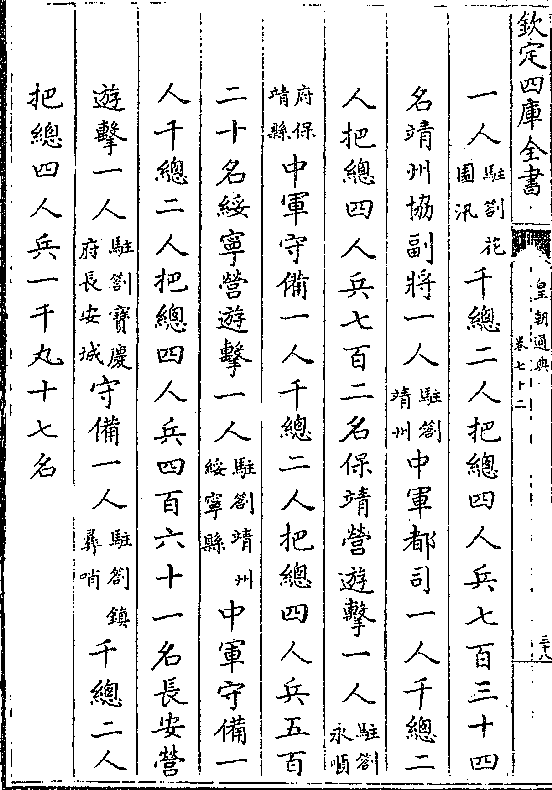 欽定四庫全書
皇朝通典
卷七十二
三十八
一人駐劄花園汛千總二人把總四人兵七百三十四
名靖州協副將一人駐劄靖州中軍都司一人千總二
人把總四人兵七百二名保靖營遊擊一人駐劄永順
府保靖縣中軍守備一人千總二人把總四人兵五百
二十名綏寧營遊擊一人駐劄靖州綏寧縣中軍守備一
人千總二人把總四人兵四百六十一名長安營
遊擊一人駐劄寶慶府長安城守備一人駐劄鎮彞哨千總二人
把總四人兵一千九十七名